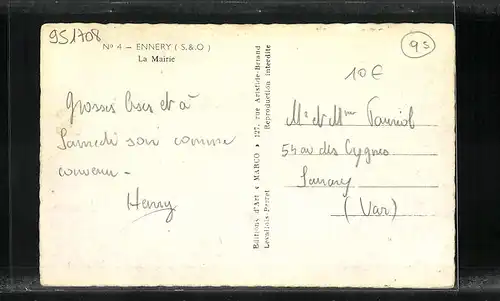 951708
Nº 4 – ENNERY ( S.&O )
La Mairie
95
10€
Grosses bises et à
Samedi soir comme
convenu -
Henry
Editions d'Art « MARCO » 127, rue Aristide-Briand
Levallois-Perret
Reproduction interdite
Mr et Mme Fauriol
54 av des Cygnes
Sanary
(Var)